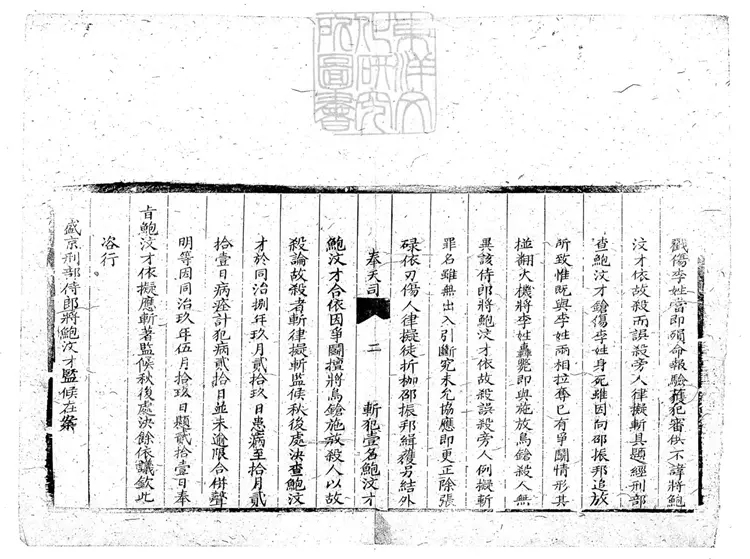 東洋文
化研究
所圖書
戳傷李姓當即殞命報驗獲犯審供不諱將鮑
汶才依故殺而誤殺旁人律擬斬具題經刑部
查鮑汶才鎗傷李姓身死雖因向邵振邦追放
所致惟既與李姓兩相拉奪已有爭鬬情形其
碰翻火機將李姓轟斃即與施放鳥鎗殺人無
異該侍郎將鮑汶才依故殺誤殺旁人例擬斬
罪名雖無出入引斷究未允協應即更正除張
碌依刃傷人律擬徒折枷邵振邦緝獲另結外
奉天司 二 斬犯壹名鮑汶才
鮑汶才合依因爭鬬擅將鳥鎗施放殺人以故
殺論故殺者斬律擬斬監候秋後處決查鮑汶
才於同治捌年玖月貳拾玖日患病至拾月貳
拾壹日病痊計犯病貳拾日並未逾限合併聲
明等因同治玖年伍月拾玖日題貳拾壹日奉
旨鮑汶才依擬應斬著監候秋後處決餘依議欽此
咨行
盛京刑部侍郎將鮑汶才監候在案